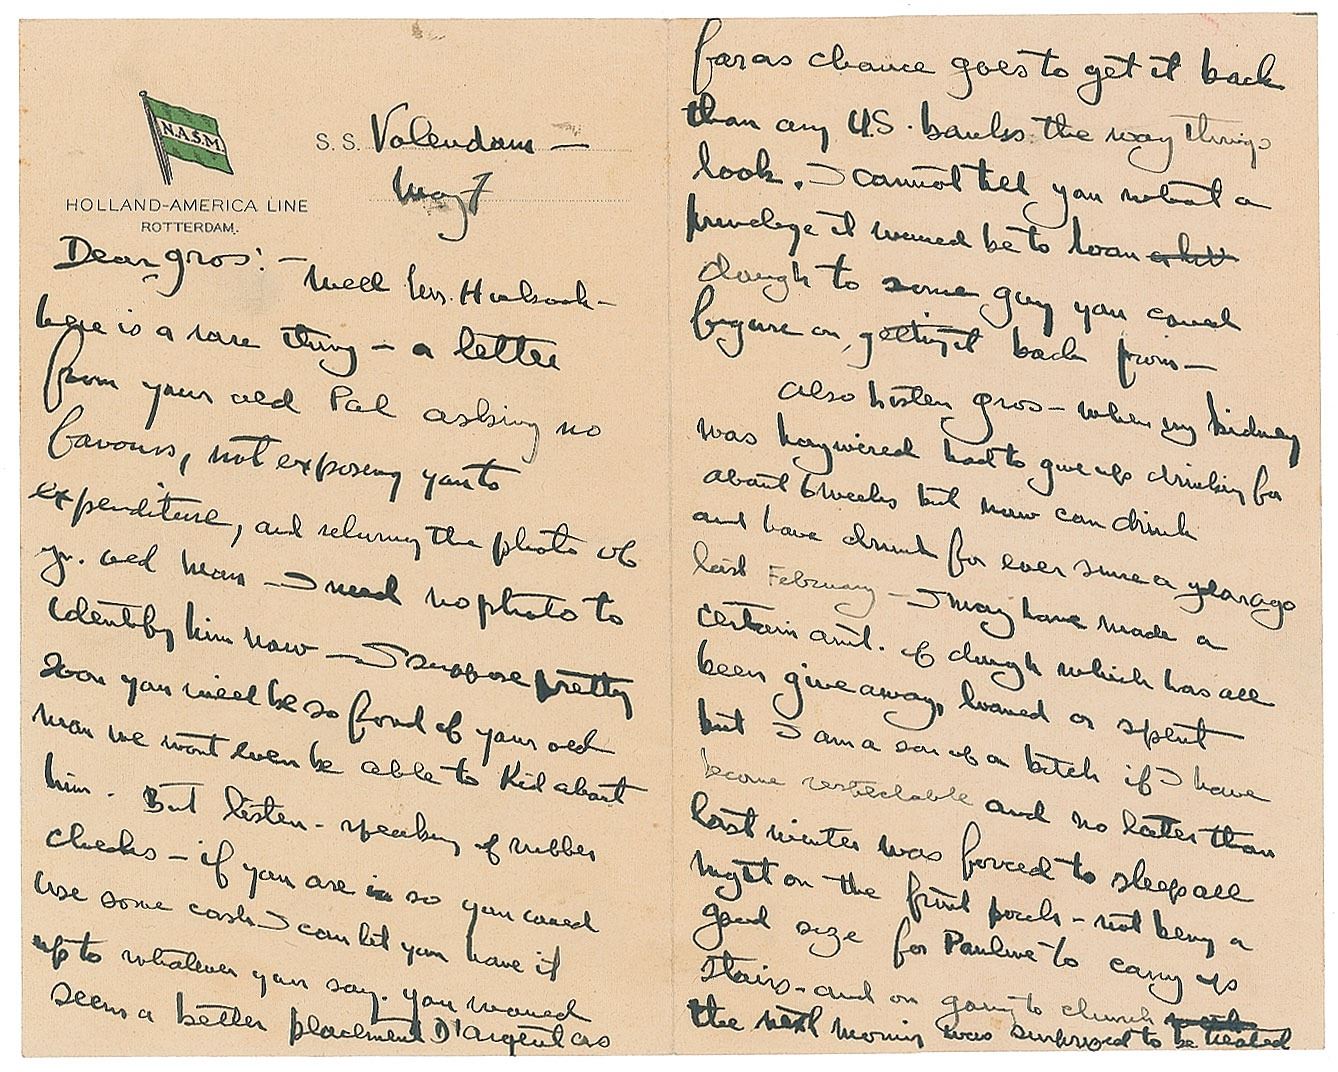 N.A.S.M.
HOLLAND-AMERICA LINE
ROTTERDAM.
S.S. Volendam —
May 7
Dear gros: — Well Mrs.
here is a rare thing — a letter
from your old Pal asking no
favours, not exposing you to
expenditure, and returning the photo of
yr. old man — I need no photo to
identify him now — I suppose pretty
soon you will be so fond of your old
man we wont even be able to kid about
him. But listen — speaking of rubber
checks — if you are in so you could
use some cash I can let you have it
up to whatever you say. You would
seem a better placement D'argent as
far as chance goes to get it back
than any U.S. banks the way things
look. I cannot tell you what a
privilege it would be to loan
dough to some guy you could
figure on getting it back from —
also listen gros — when my kidney
was haywired had to give up drinking for
about 6 weeks but now can drink
and have drunk for ever since a year ago
last February — I may have made a
certain amt. of dough which has all
been give away, loaned or spent
but I am a son of a bitch if I have
become respectable and no later than
last winter was forced to sleep all
night on the front porch — not being a
good size for Pauline to carry up
stairs — and on going to church
the next morning was surprised to be treated